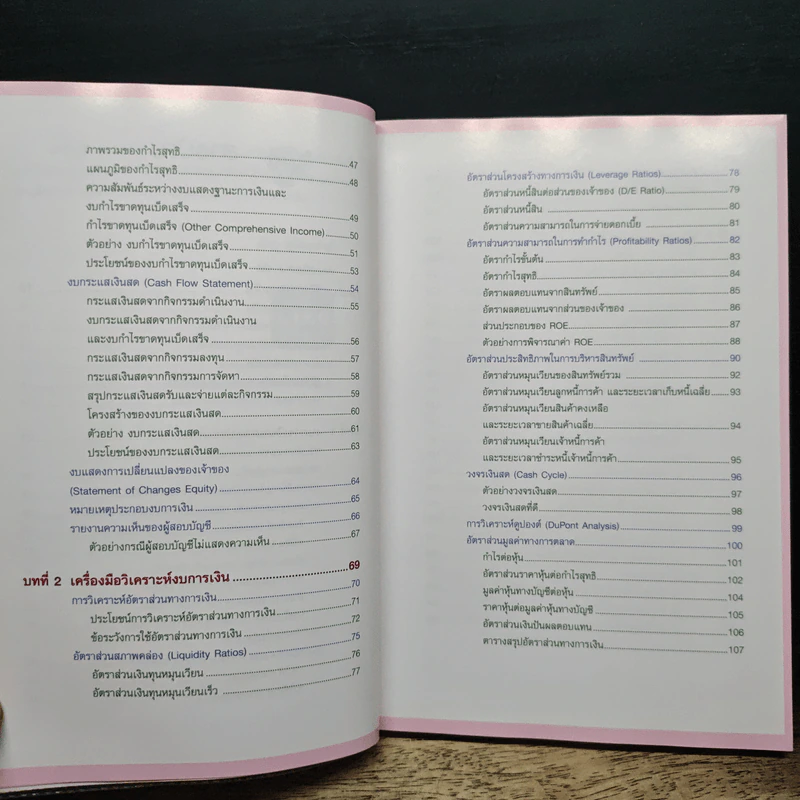 ภาพรวมของกำไรสุทธิ 47
แผนภูมิของกำไรสุทธิ 48
ความสัมพันธ์ระหว่างงบแสดงฐานะการเงินและ
งบกำไรขาดทุนเบ็ดเสร็จ 49
กำไรขาดทุนเบ็ดเสร็จ (Other Comprehensive Income) 50
ตัวอย่าง งบกำไรขาดทุนเบ็ดเสร็จ 51
ประโยชน์ของงบกำไรขาดทุนเบ็ดเสร็จ 53
งบกระแสเงินสด (Cash Flow Statement) 54
กระแสเงินสดจากกิจกรรมดำเนินงาน 55
งบกระแสเงินสดจากกิจกรรมดำเนินงาน
และงบกำไรขาดทุนเบ็ดเสร็จ 56
กระแสเงินสดจากกิจกรรมลงทุน 57
กระแสเงินสดจากกิจกรรมการจัดหา 58
สรุปกระแสเงินสดรับและจ่ายแต่ละกิจกรรม 59
โครงสร้างของงบกระแสเงินสด 60
ตัวอย่าง งบกระแสเงินสด 61
ประโยชน์ของงบกระแสเงินสด 63
งบแสดงการเปลี่ยนแปลงของเจ้าของ
(Statement of Changes Equity) 64
หมายเหตุประกอบงบการเงิน 65
รายงานความเห็นของผู้สอบบัญชี 66
ตัวอย่างกรณีผู้สอบบัญชีไม่แสดงความเห็น 67
บทที่ 2 เครื่องมือวิเคราะห์งบการเงิน 69
การวิเคราะห์อัตราส่วนทางการเงิน 70
ประโยชน์การวิเคราะห์อัตราส่วนทางการเงิน 71
ข้อระวังการใช้อัตราส่วนทางการเงิน 72
อัตราส่วนสภาพคล่อง (Liquidity Ratios) 75
อัตราส่วนเงินทุนหมุนเวียน 76
อัตราส่วนเงินทุนหมุนเวียนเร็ว 77
อัตราส่วนโครงสร้างทางการเงิน (Leverage Ratios) 78
อัตราส่วนหนี้สินต่อส่วนของเจ้าของ (D/E Ratio) 79
อัตราส่วนหนี้สิน 80
อัตราส่วนความสามารถในการจ่ายดอกเบี้ย 81
อัตราส่วนความสามารถในการทำกำไร (Profitability Ratios) 82
อัตรากำไรขั้นต้น 83
อัตรากำไรสุทธิ 84
อัตราผลตอบแทนจากสินทรัพย์ 85
อัตราผลตอบแทนจากส่วนของเจ้าของ 86
ส่วนประกอบของ ROE 87
ตัวอย่างการพิจารณาค่า ROE 88
อัตราส่วนประสิทธิภาพในการบริหารสินทรัพย์ 90
อัตราส่วนหมุนเวียนของสินทรัพย์รวม 92
อัตราส่วนหมุนเวียนลูกหนี้การค้า และระยะเวลาเก็บหนี้เฉลี่ย 93
อัตราส่วนหมุนเวียนสินค้าคงเหลือ
และระยะเวลาขายสินค้าเฉลี่ย 94
อัตราส่วนหมุนเวียนเจ้าหนี้การค้า
และระยะเวลาชำระหนี้เจ้าหนี้การค้า 95
วงจรเงินสด (Cash Cycle) 96
ตัวอย่างวงจรเงินสด 97
วงจรเงินสดที่ดี 98
การวิเคราะห์ดูปองต์ (DuPont Analysis) 99
อัตราส่วนมูลค่าทางการตลาด 100
กำไรต่อหุ้น 101
อัตราส่วนราคาหุ้นต่อกำไรสุทธิ 102
มูลค่าหุ้นทางบัญชีต่อหุ้น 104
ราคาหุ้นต่อมูลค่าหุ้นทางบัญชี 105
อัตราส่วนเงินปันผลตอบแทน 106
ตารางสรุปอัตราส่วนทางการเงิน 107